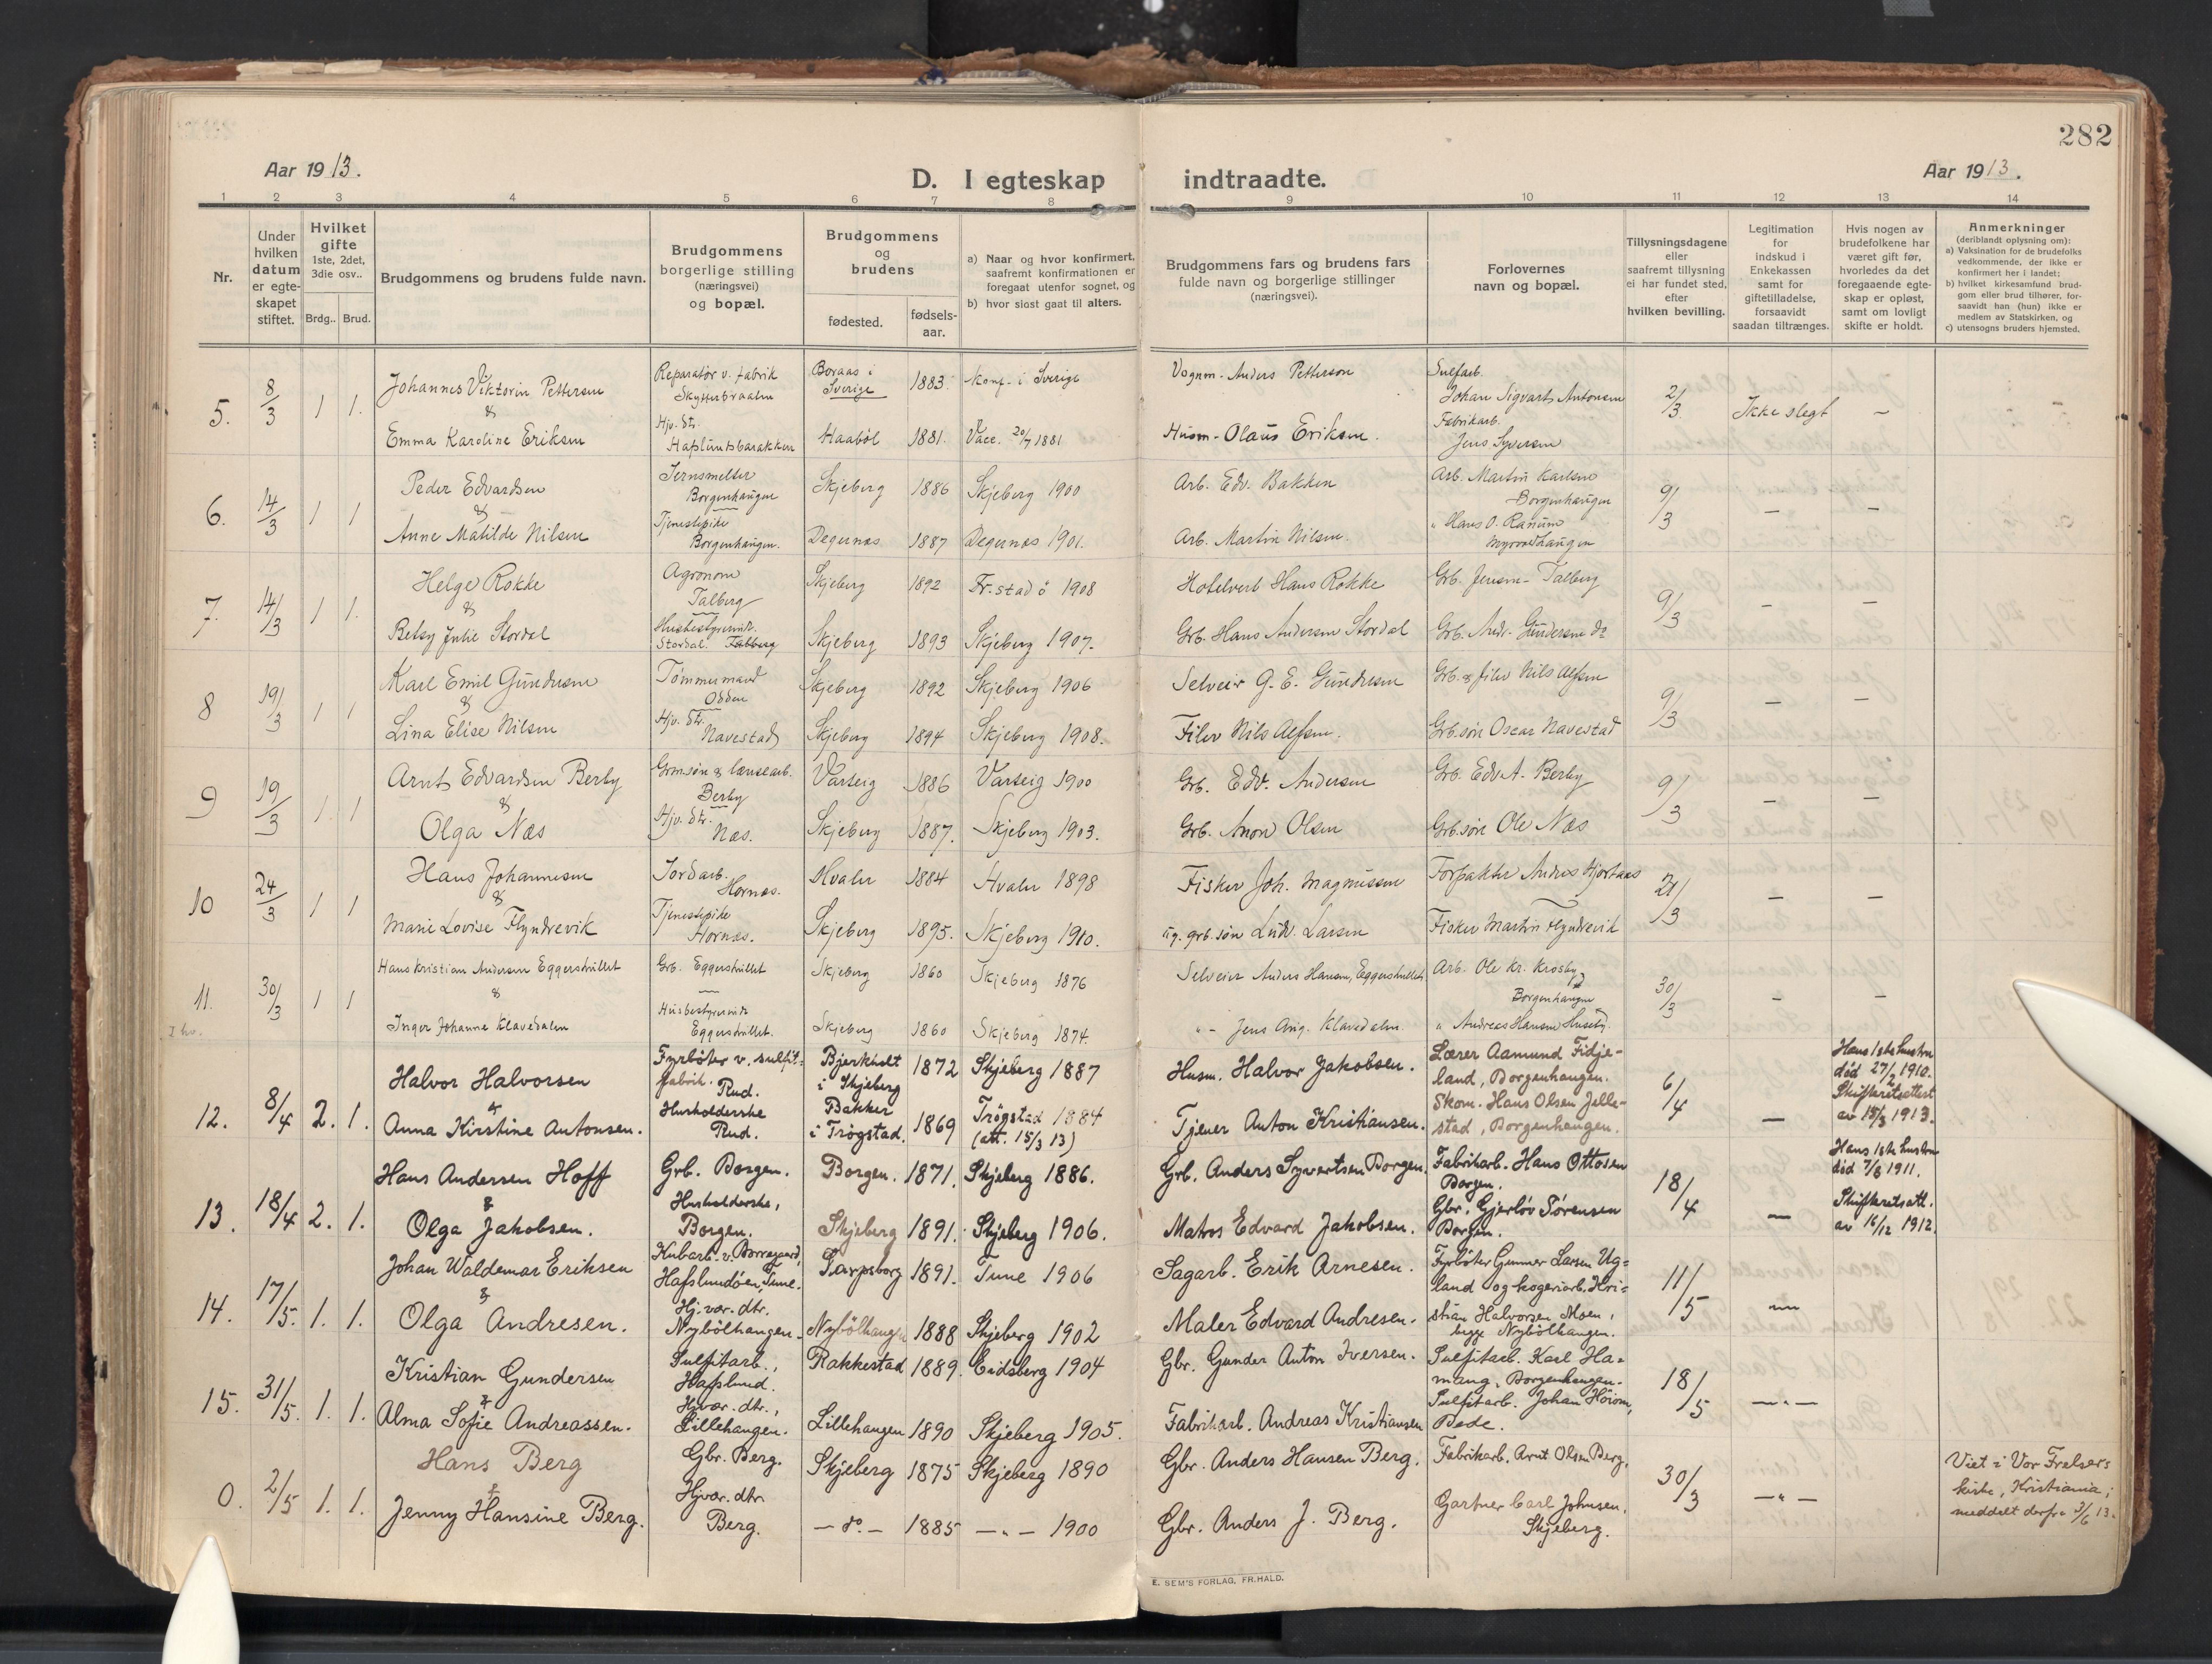 282
Aar 1913.
D. I egteskap indtraadte.
Aar 1913.
1 2 3 4 5 6 7 8 9 10 11 12 13 14
Nr.
Under hvilken datum er egte- skapet stiftet.
Hvilket gifte 1ste, 2det, 3die osv..
Brdg.. Brud.
Brudgommens og brudens fulde navn.
Brudgommens borgerlige stilling (næringsvei) og bopæl.
Brudgommens og brudens
fødested.
fødsels- aar.
a) Naar og hvor konfirmert, saafremt konfirmationen er foregaat utenfor sognet, og
b) hvor sidst gaat til alters.
Brudgommens fars og brudens fars fulde navn og borgerlige stillinger (næringsvei).
Forlovernes navn og bopæl.
Tillysningsdagene eller saafremt tillysning ei har fundet sted, efter hvilken bevilling.
Legitimation for indskud i Enkekassen samt for giftetilladelse, forsaavidt saadan tiltrænges.
Hvis nogen av brudefolkene har været gift før, hvorledes da det foregaaende egte- skap er opløst, samt om lovligt skifte er holdt.
Anmerkninger
(deriblandt oplysning om):
a) Vaksination for de brudefolks vedkommende, der ikke er konfirmert her i landet;
b) hvilket kirkesamfund brud- gom eller brud tilhører, for- saavidt han (hun) ikke er medlem av Statskirken, og
c) utensogns bruders hjemsted.
5. 8/3 1 1. Johannes Viktorin Pettersen Reparatør v. fabrik Skytterbraaten Boraas i Sverige 1883. Konf. i Sverige Vognm. Anders Petterson Sulfarb. Johan Sigvart Antonsen 2/3 Ikke slegt –
& Emma Karoline Eriksen Hjv. dtr. Hafslundsbarakken Haaböl 1881. Vacc. 20/7 1881 Husm. Olaus Eriksen. Fabrikarb. Jens Syversen
6. 14/3 1 1 Peder Edvardsen Jernsmelter Borgenhaugen Skjeberg 1886 Skjeberg 1900 Arb. Edv. Bakken Arb. Martin Karlsen Borgenhaugen 9/3 – –
& Anne Matilde Nilsen Tjenestepike Borgenhaugen. Degernæs 1887 Degernæs 1901. Arb. Martin Nilsen. " Hans O. Ranum
7. 14/3 1 1. Helge Rokke Agronom Talberg Skjeberg 1892 Fr.stad ö 1908 Hotelvert Hans Rokke Grb. Jensen Talberg 9/3 – –
& Betsy Julie Stordal Husbestyrerinde Stordal. Talberg Skjeberg 1893 Skjeberg 1907. Grb. Hans Andersen Stordal Grb. Andr. Gundersen do
8 19/3 1 1 Karl Emil Gundersen Tömmermand Odden Skjeberg 1892 Skjeberg 1906 Selveier G. E. Gundersen Grb. & filer Nils Alfsen 9/3 – –
& Lina Elise Nilsen Hjv. dtr. Navestad Skjeberg 1894 Skjeberg 1908. Filer Nils Alfsen. Grb.sön Oscar Navestad
9 19/3 1. 1. Arnt Edvardsen Berby Grb.sön & lænsearb. Berby Varteig 1886 Varteig 1900 Grb. Edv. Andersen Grb. Edv. A. Berby 9/3 – –
& Olga Næs Hjv. dtr. Næs. Skjeberg 1887. Skjeberg 1903. Grb. Anon Olsen Grb.sön Ole Næs
10 24/3 1 1 Hans Johannesen Jordarb. Hornæs. Hvaler 1884 Hvaler 1898 Fisker Joh. Magnussen Forpakter Andres Hjortnæs 21/3 – –
& Marie Lovise Flyndrevik Tjenestepike Hornæs. Skjeberg 1895. Skjeberg 1910. ug. grb.sön Ludv. Larsen Fisker Martin Flyndrevik
11. 30/3 1 1 Hans Kristian Andersen Eggershullet Grb. Eggershullet Skjeberg 1860 Skjeberg 1876 Selveier Anders Hansen, Eggershullet Arb. Ole Kr. Krosby, Borgenhaugen 30/3 – –
& Inger Johanne Klavedalen Husbestyrerinde Eggershullet. Skjeberg 1860 Skjeberg 1874. " – Jens Aug. Klavedalen " Andreas Hansen Huseby.
12. 8/4 2. 1. Halvor Halvorsen Fyrböter v. sulfit- fabrik. Rud. Bjerkholt i Skjeberg 1872 Skjeberg 1887 Husm. Halvor Jakobsen. Lærer Aamund Fidje- land, Borgenhaugen. 6/4 – Hans 1ste hustru död 27/2 1910. Skifteretsattest av 15/3 1913.
& Anna Kirstine Antonsen. Husholderske Rud. Bakker i Trögstad. 1869 Trögstad 1884 (att. 15/3 13) Tjener Anton Kristiansen. Skom. Hans Olsen Jelle- stad, Borgenhaugen.
13. 18/4 2. 1. Hans Andersen Hoff Grb. Borgen. Borgen. 1871. Skjeberg 1886. Grb. Anders Syvertsen Borgen. Fabrikarb. Hans Ottosen Borgen. 18/4 – Hans 1ste hustru död 7/8 1911. Skifteretsatt. av 16/12 1912.
& Olga Jakobsen. Husholderske, Borgen. Skjeberg 1891. Skjeberg 1906. Matros Edvard Jakobsen. Gbr. Gjerlöv Sörensen Borgen.
14. 17/5. 1. 1. Johan Waldemar Eriksen Kubarb. v. Borregaard, Hafslundöen, Tune. Sarpsborg 1891. Tune 1906 Sagarb. Erik Arnesen. Fyrböter Gunnar Larsen Ug= land og kogeriarb. Kri= 11/5 –
& Olga Andresen. Hj.vær. dtr. Nybölhaugen. Nybölhaugen 1888 Skjeberg 1902 Maler Edvard Andresen. stian Halvorsen Moen, begge Nybölhaugen.
15. 31/5. 1. 1. Kristian Gundersen Sulfitarb., Hafslund. Rakkestad 1889. Eidsberg 1904 Gbr. Gunder Anton Iversen. Sulfitarb. Karl Ha= mang, Borgenhaugen. 18/5 – " –
& Alma Sofie Andreassen. Hjvær. dtr., Lillehaugen. Lillehaugen 1890 Skjeberg 1905. Fabrikarb. Andreas Kristiansen Sulfitarb. Johan Höiom, Bede.
0. 2/5 1. 1. Hans Berg Gbr. Berg. Skjeberg 1875 Skjeberg 1890 Gbr. Anders Hansen Berg. Fabrikarb. Arnt Olsen Berg. 30/3 – " – Viet i Vor Frelsers kirke, Kristiania; meddelt derfra 3/6 13.
& Jenny Hansine Berg. Hjvær. dtr. Berg. – do. – 1885 – " – 1900 Gbr. Anders J. Berg. Gartner Carl Johnsen, Skjeberg.
E. SEM'S FORLAG, FR.HALD.